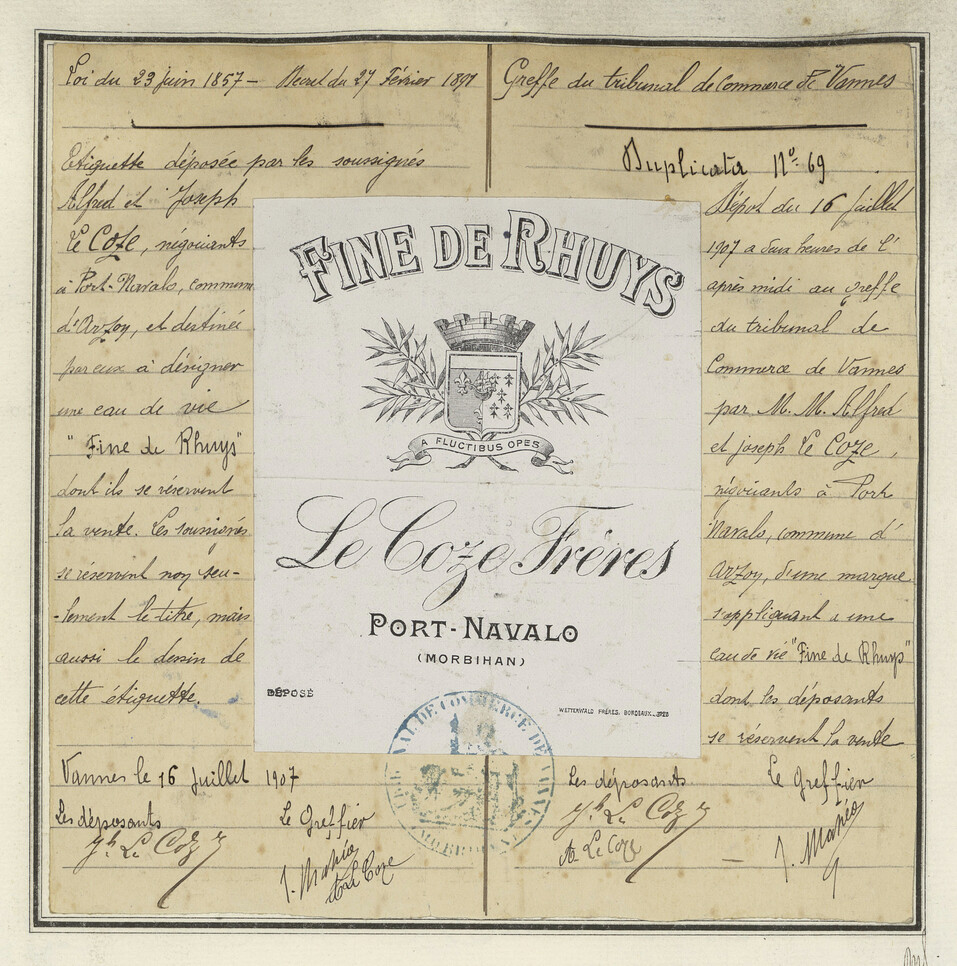 Loi du 23 juin 1857 - Décret du 27 Février 1891
Etiquette déposée par les soussignés
Alfred et Joseph
Le Coze, négociants
à Port-Navalo, commune
d'Arzon, et destinée
par eux à désigner
une eau de vie
"Fine de Rhuys"
dont ils se réservent
la vente. Les soussignés
se réservent non seu-
-lement le titre, mais
aussi le dessin de
cette étiquette.
Vannes le 16 Juillet 1907
Les déposants
Jh Le Coze
Le Greffier
J. Mahéo
A Le Coze
FINE DE RHUYS
A FLUCTIBUS OPES
Le Coze Fréres
PORT-NAVALO
(MORBIHAN)
DÉPOSÉ
WETTERWALD FRÈRES, BORDEAUX.
TRIBUNAL DE COMMERCE DE VANNES
MORBIHAN
Greffe du tribunal de commerce de Vannes
Duplicata No 69
Dépot du 16 Juillet
1907 a deux heures de l'
après midi au greffe
du tribunal de
Commerce de Vannes
par M. M. Alfred
et joseph Le Coze,
négociants à Port
Navalo, commune d'
Arzon, d'une marque
s'appliquant a une
eau de vie "Fine de Rhuys"
dont les déposants
se réservent la vente
Les déposants
Jh Le Coze
A Le Coze
Le Greffier
J. Mahéo